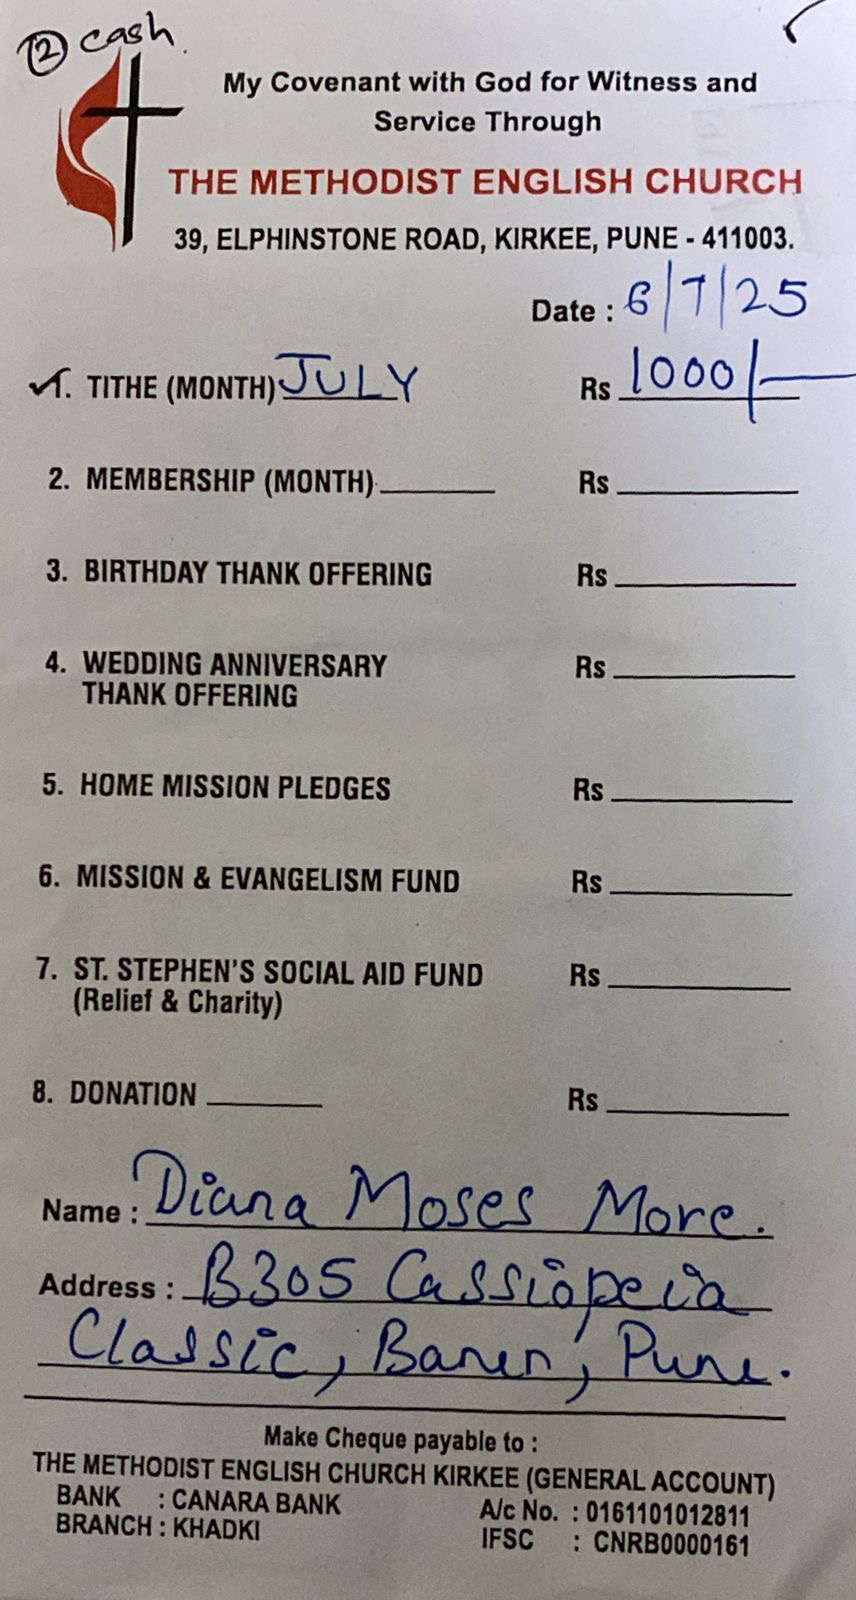 ② cash.
My Covenant with God for Witness and
Service Through
THE METHODIST ENGLISH CHURCH
39, ELPHINSTONE ROAD, KIRKEE, PUNE - 411003.
Date : 6/7/25
✓1. TITHE (MONTH) JULY Rs 1000/-
2. MEMBERSHIP (MONTH) ______ Rs ______
3. BIRTHDAY THANK OFFERING Rs ______
4. WEDDING ANNIVERSARY Rs ______
THANK OFFERING
5. HOME MISSION PLEDGES Rs ______
6. MISSION & EVANGELISM FUND Rs ______
7. ST. STEPHEN'S SOCIAL AID FUND Rs ______
(Relief & Charity)
8. DONATION ______ Rs ______
Name : Diana Moses More.
Address : B305 Cassiopeia
Classic, Baner, Pune.
Make Cheque payable to :
THE METHODIST ENGLISH CHURCH KIRKEE (GENERAL ACCOUNT)
BANK : CANARA BANK A/c No. : 0161101012811
BRANCH : KHADKI IFSC : CNRB0000161